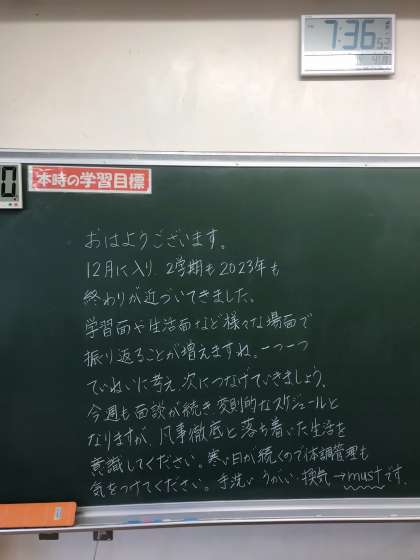 7:36 52
本時の学習目標
おはようございます。
12月に入り、2学期も2023年も
終わりが近づいてきました。
学習面や生活面など様々な場面で
振り返ることが増えますね。一つ一つ
ていねいに考え次につなげていきましょう。
今週も面談が続き変則的なスケジュールと
なりますが、凡事徹底と落ち着いた生活を
意識してください。寒い日が続くので体調管理も
気をつけてください。手洗い うがい 換気 → mustです。